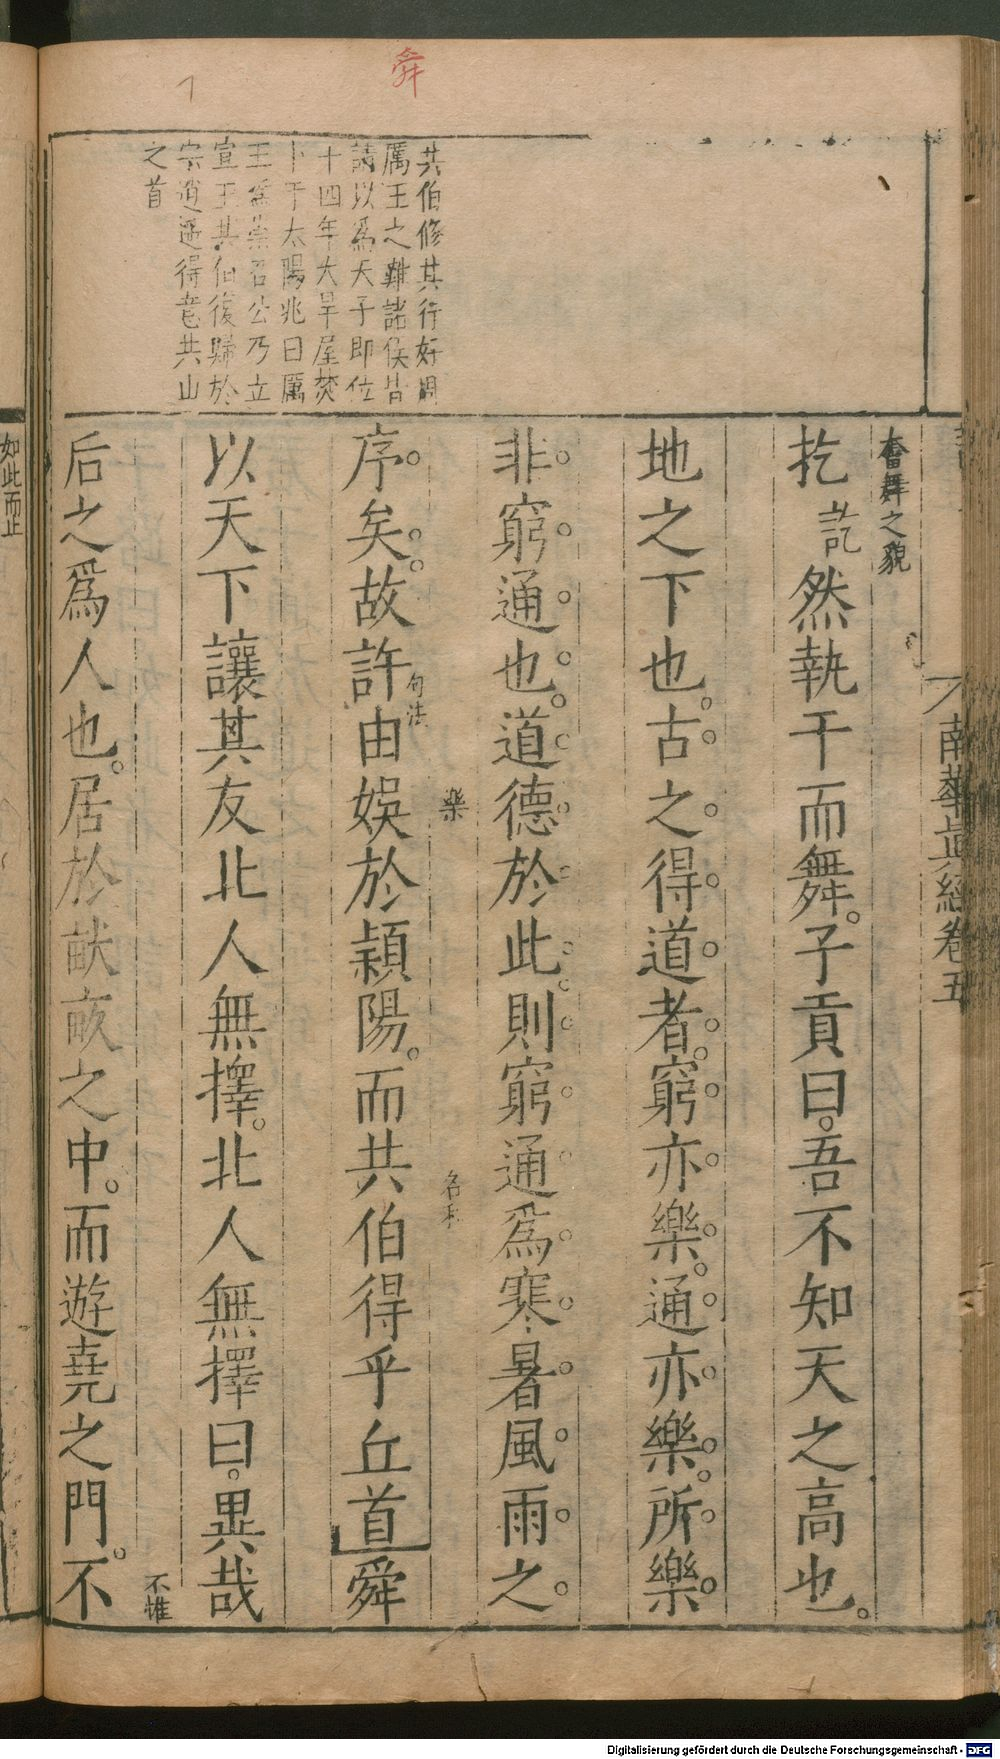 舜
共伯修其行好賢
厲王之難諸侯皆
請以為天子即位
十四年大旱屋焚
卜于太陽兆曰厲
王為祟召公乃立
宣王共伯復歸於
宗逍遥得意共山
之首
南華真經卷五
奮舞之貌
扢訖然執干而舞。子貢曰。吾不知天之高也。
地之下也。古之得道者。窮亦樂。通亦樂。所樂
非窮通也。道德於此。則窮通爲寒暑風雨之
樂
名利
序矣。故許由娛於穎陽。而共伯得乎丘首舜
句法
以天下讓其友北人無擇。北人無擇曰。異哉
不惟
后之爲人也。居於畎畝之中。而遊堯之門。不
如此而止
Digitalisierung gefördert durch die Deutsche Forschungsgemeinschaft - DFG